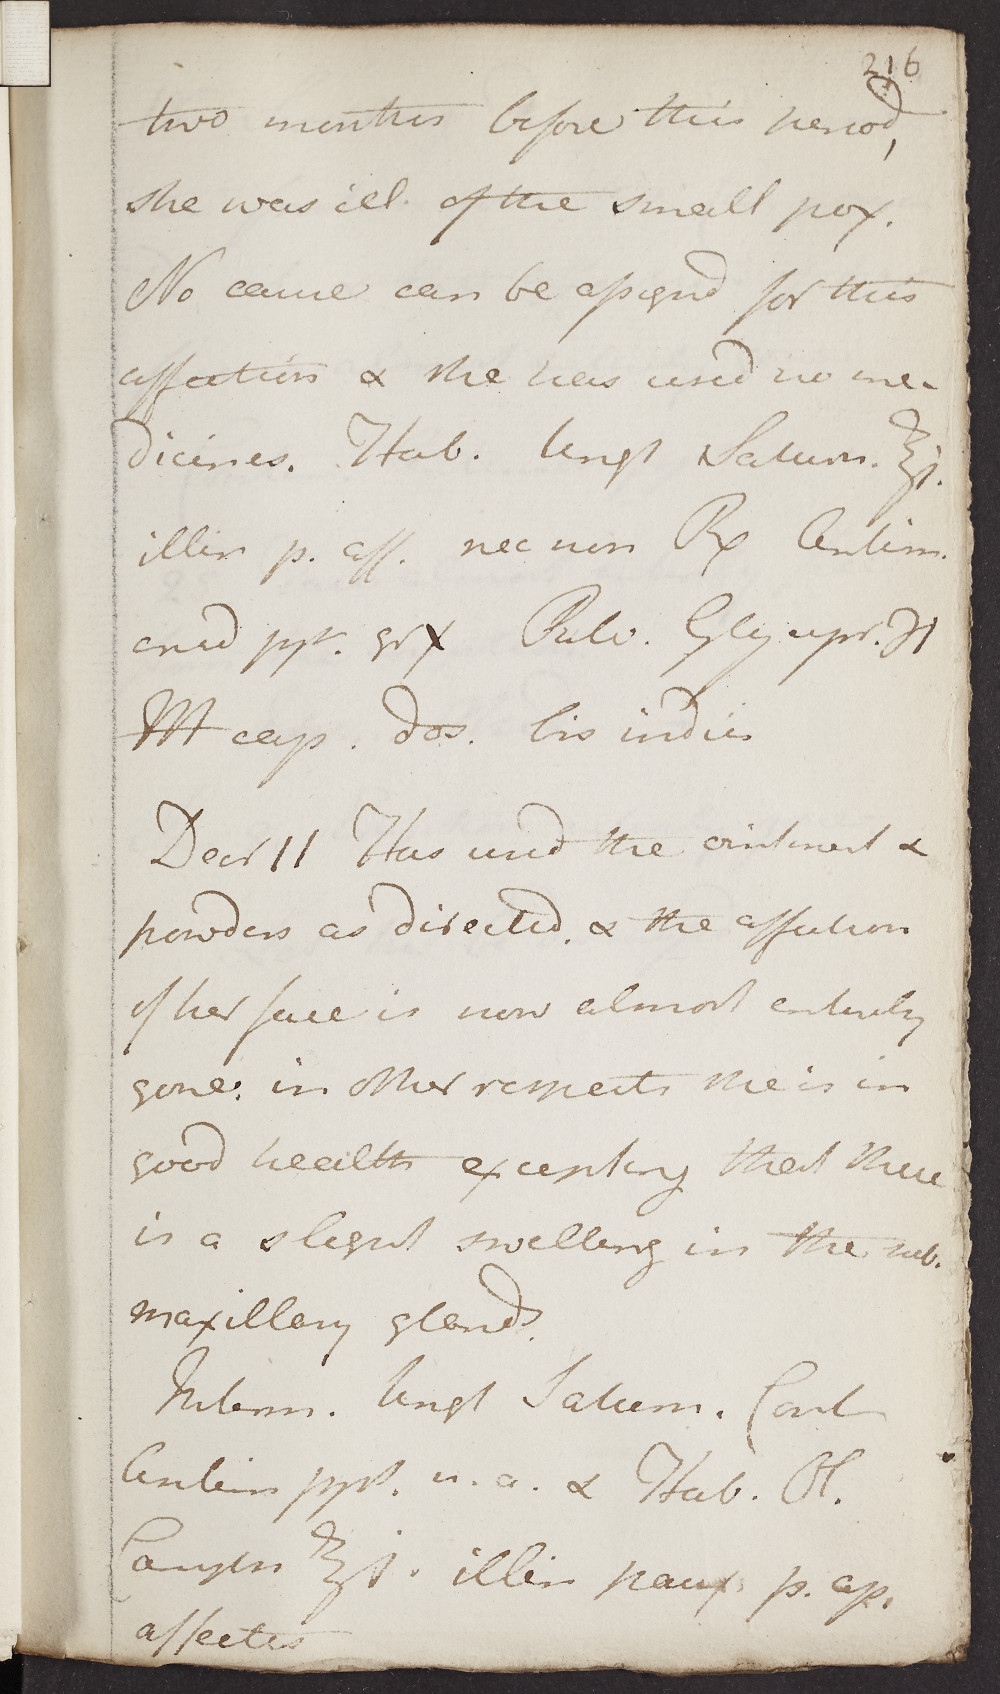 216
two months before this period,
she was ill of the small pox.
No cause can be assignd for this
affection & she has used no me-
dicines. Hab. Ungt Saturn. ℥j.
illin p. aff. nec non Rx Antim.
crud ppt. gr x Pulv. Glycyrr. ℈i
M cap. dos. bis indies
Decr 11 Has used the ointment &
powders as directed, & the affection
of her face is now almost entirely
gone. in other respects she is in
good health excepting that there
is a slight swelling in the sub.
maxillary glands.
Interm. Ungt Saturn. Cont
Antim ppt. u. a. & Hab. Ol.
Camphr ℥j. illin paux p. ap.
affectis